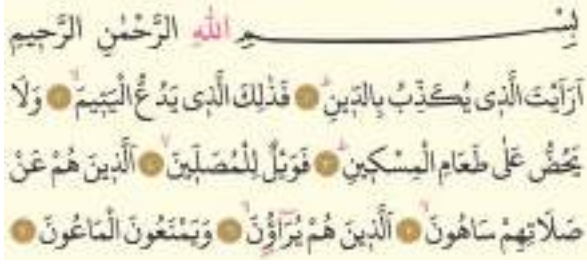 بِسْمِ اللهِ الرَّحْمٰنِ الرَّحٖيمِ
اَرَاَيْتَ الَّذٖى يُكَذِّبُ بِالدّٖينِ ﴿١﴾ فَذٰلِكَ الَّذٖى يَدُعُّ الْيَتٖيمَ ﴿٢﴾ وَلَا
يَحُضُّ عَلٰى طَعَامِ الْمِسْكٖينِ ﴿٣﴾ فَوَيْلٌ لِلْمُصَلّٖينَ ﴿٤﴾ اَلَّذٖينَ هُمْ عَنْ
صَلَاتِهِمْ سَاهُونَ ﴿٥﴾ اَلَّذٖينَ هُمْ يُرَاؤُ۫نَ ﴿٦﴾ وَيَمْنَعُونَ الْمَاعُونَ ﴿٧﴾